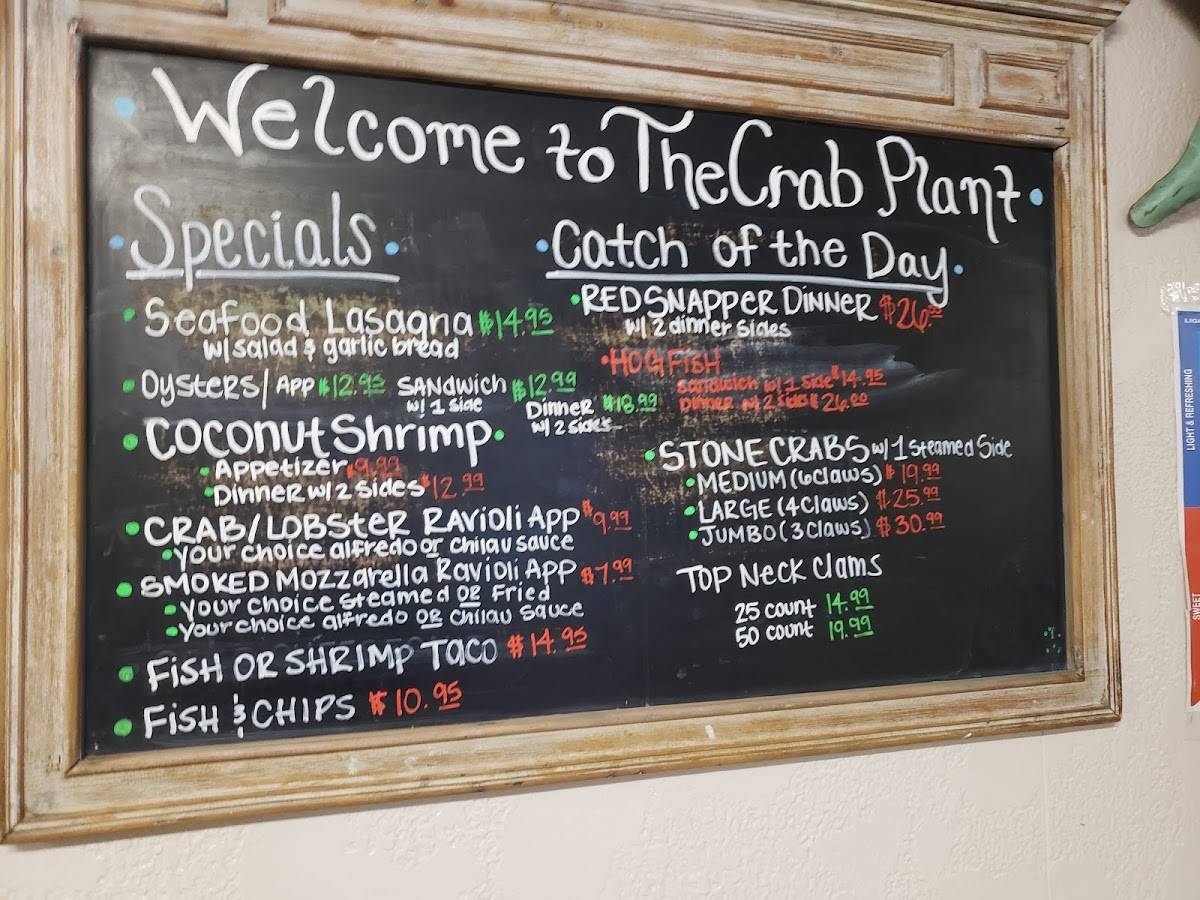 Welcome to The Crab Plant
Specials
Seafood Lasagna $14.95
w/ salad & garlic bread
Oysters/ App $12.95 Sandwich $12.99
w/ 1 side
Dinner $18.99
w/ 2 sides
Coconut Shrimp
Appetizer $9.99
Dinner w/ 2 sides $12.99
CRAB/LOBSTER RAVIOLI App $9.99
Your choice alfredo or chilau sauce
SMOKED Mozzarella Ravioli App $7.99
Your choice steamed OR Fried
Your choice alfredo OR chilau sauce
FISH OR SHRIMP TACO $14.95
FISH & CHIPS $10.95
Catch of the Day
RED SNAPPER DINNER $26.00
w/ 2 dinner sides
HOGFISH
Sandwich w/ 1 side $14.95
Dinner w/ 2 sides $26.00
STONE CRABS w/ 1 Steamed Side
MEDIUM (6 claws) $19.99
LARGE (4 claws) $25.99
JUMBO (3 claws) $30.99
TOP Neck Clams
25 count 14.99
50 count 19.99
LIGHT & REFRESHING
SWEET